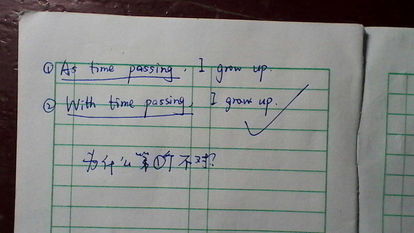 ① As time passing, I grow up.
② With time passing, I grow up.
为什么第①个不对?